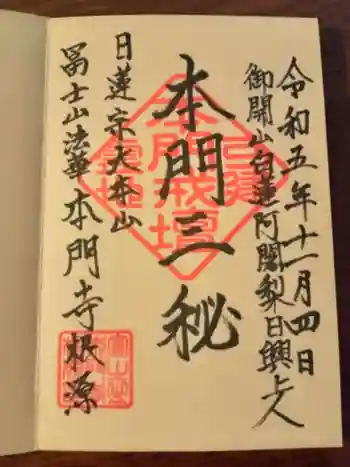 令和五年十一月四日
御開山白蓮阿闍梨日興上人
本門三秘
日蓮宗大本山
冨士山法華本門寺根源
本門戒壇